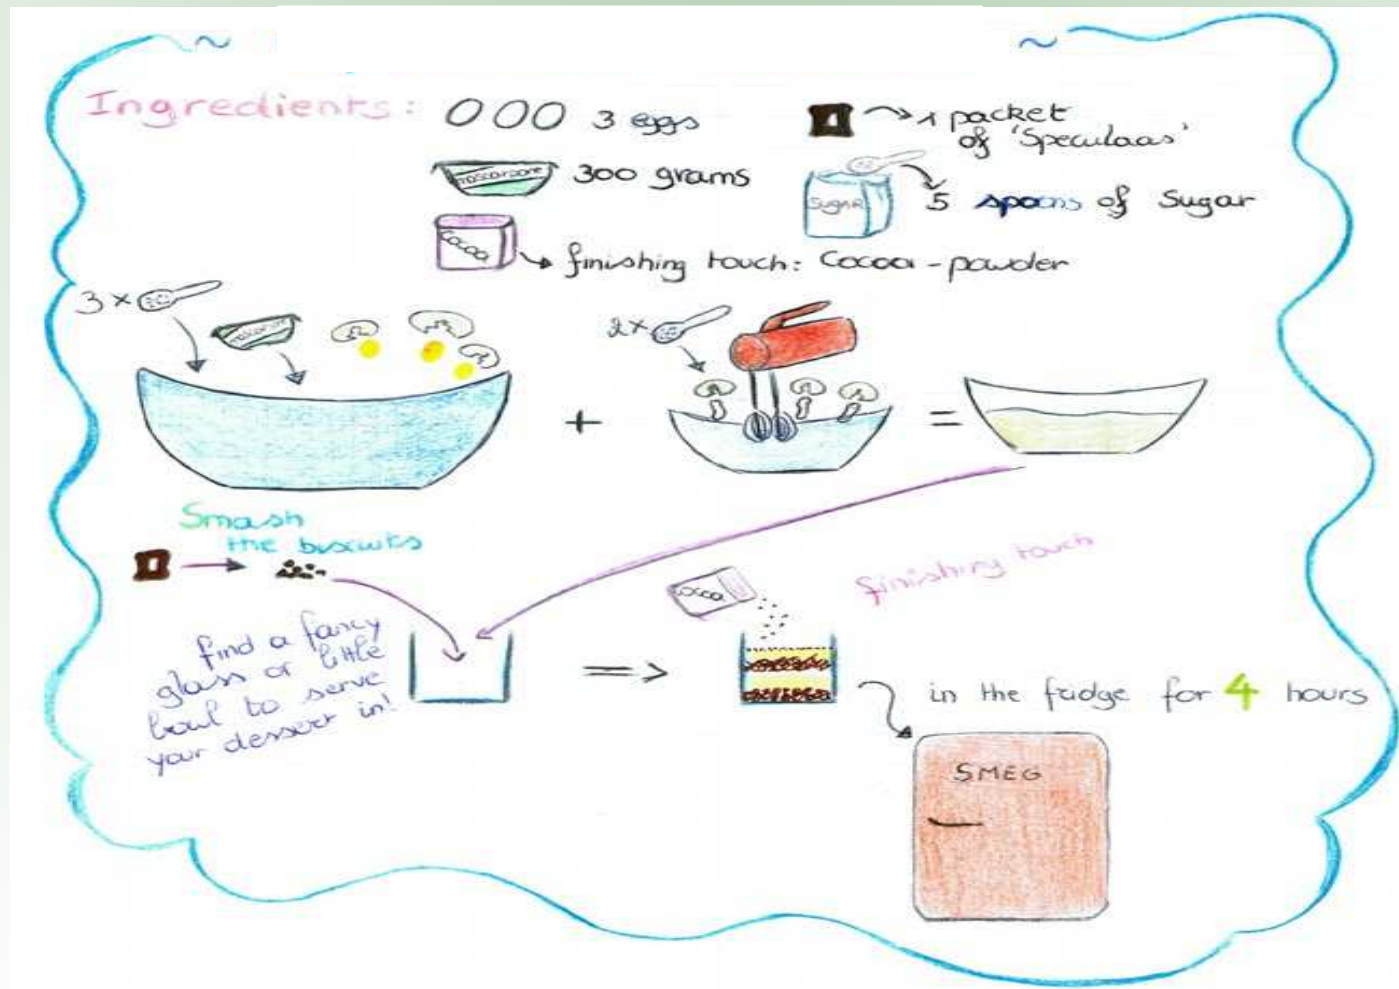 ~ ~
Ingredients:
3 eggs
1 packet
of 'Speculaas'
mascarpone
300 grams
SUGAR
5 spoons of Sugar
Cocoa
finishing touch: Cocoa-powder
3x
mascarpone
2x
+
=
Smash
the biscuits
find a fancy
glass or little
bowl to serve
your dessert in!
=>
cocoa
finishing touch
in the fridge for 4 hours
SMEG